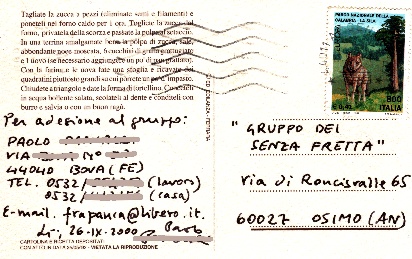 Tagliate la zucca a pezzi (eliminate semi e filamenti) e
poneteli nel forno caldo per 1 ora. Togliete la zucca dal
forno, privatela della scorza e passate la polpa al setaccio.
In una terrina amalgamate bene la polpa di zucca, sale,
abbondante noce moscata, 6 cucchiai di grana grattugiato
e 1 uovo (se necessario aggiungete un po' di pan grattato).
Con la farina e le uova fate una sfoglia e ricavate dei
quadratini piuttosto grandi su cui porrete un po' di impasto.
Chiudete a triangolo e date la forma di tortellino. Cuoceteli
in acqua bollente salata, scolateli al dente e conditeli con
burro e salvia o con un buon ragù.
Per adesione al gruppo:
PAOLO
VIA N°
44040 BOVA (FE)
TEL. 0532/ (lavoro)
0532/ (casa)
E-mail. frapanca@libero.it.
lì, 26-IX-2000
CARTOLINA E RICETTA DEPOSITATE
VIETATA LA RIPRODUZIONE
PARCO NAZIONALE DELLA
CALABRIA LA SILA
800
ITALIA
"GRUPPO DEI
SENZA FRETTA"
Via di Roncisvalle 65
60027 OSIMO (AN)